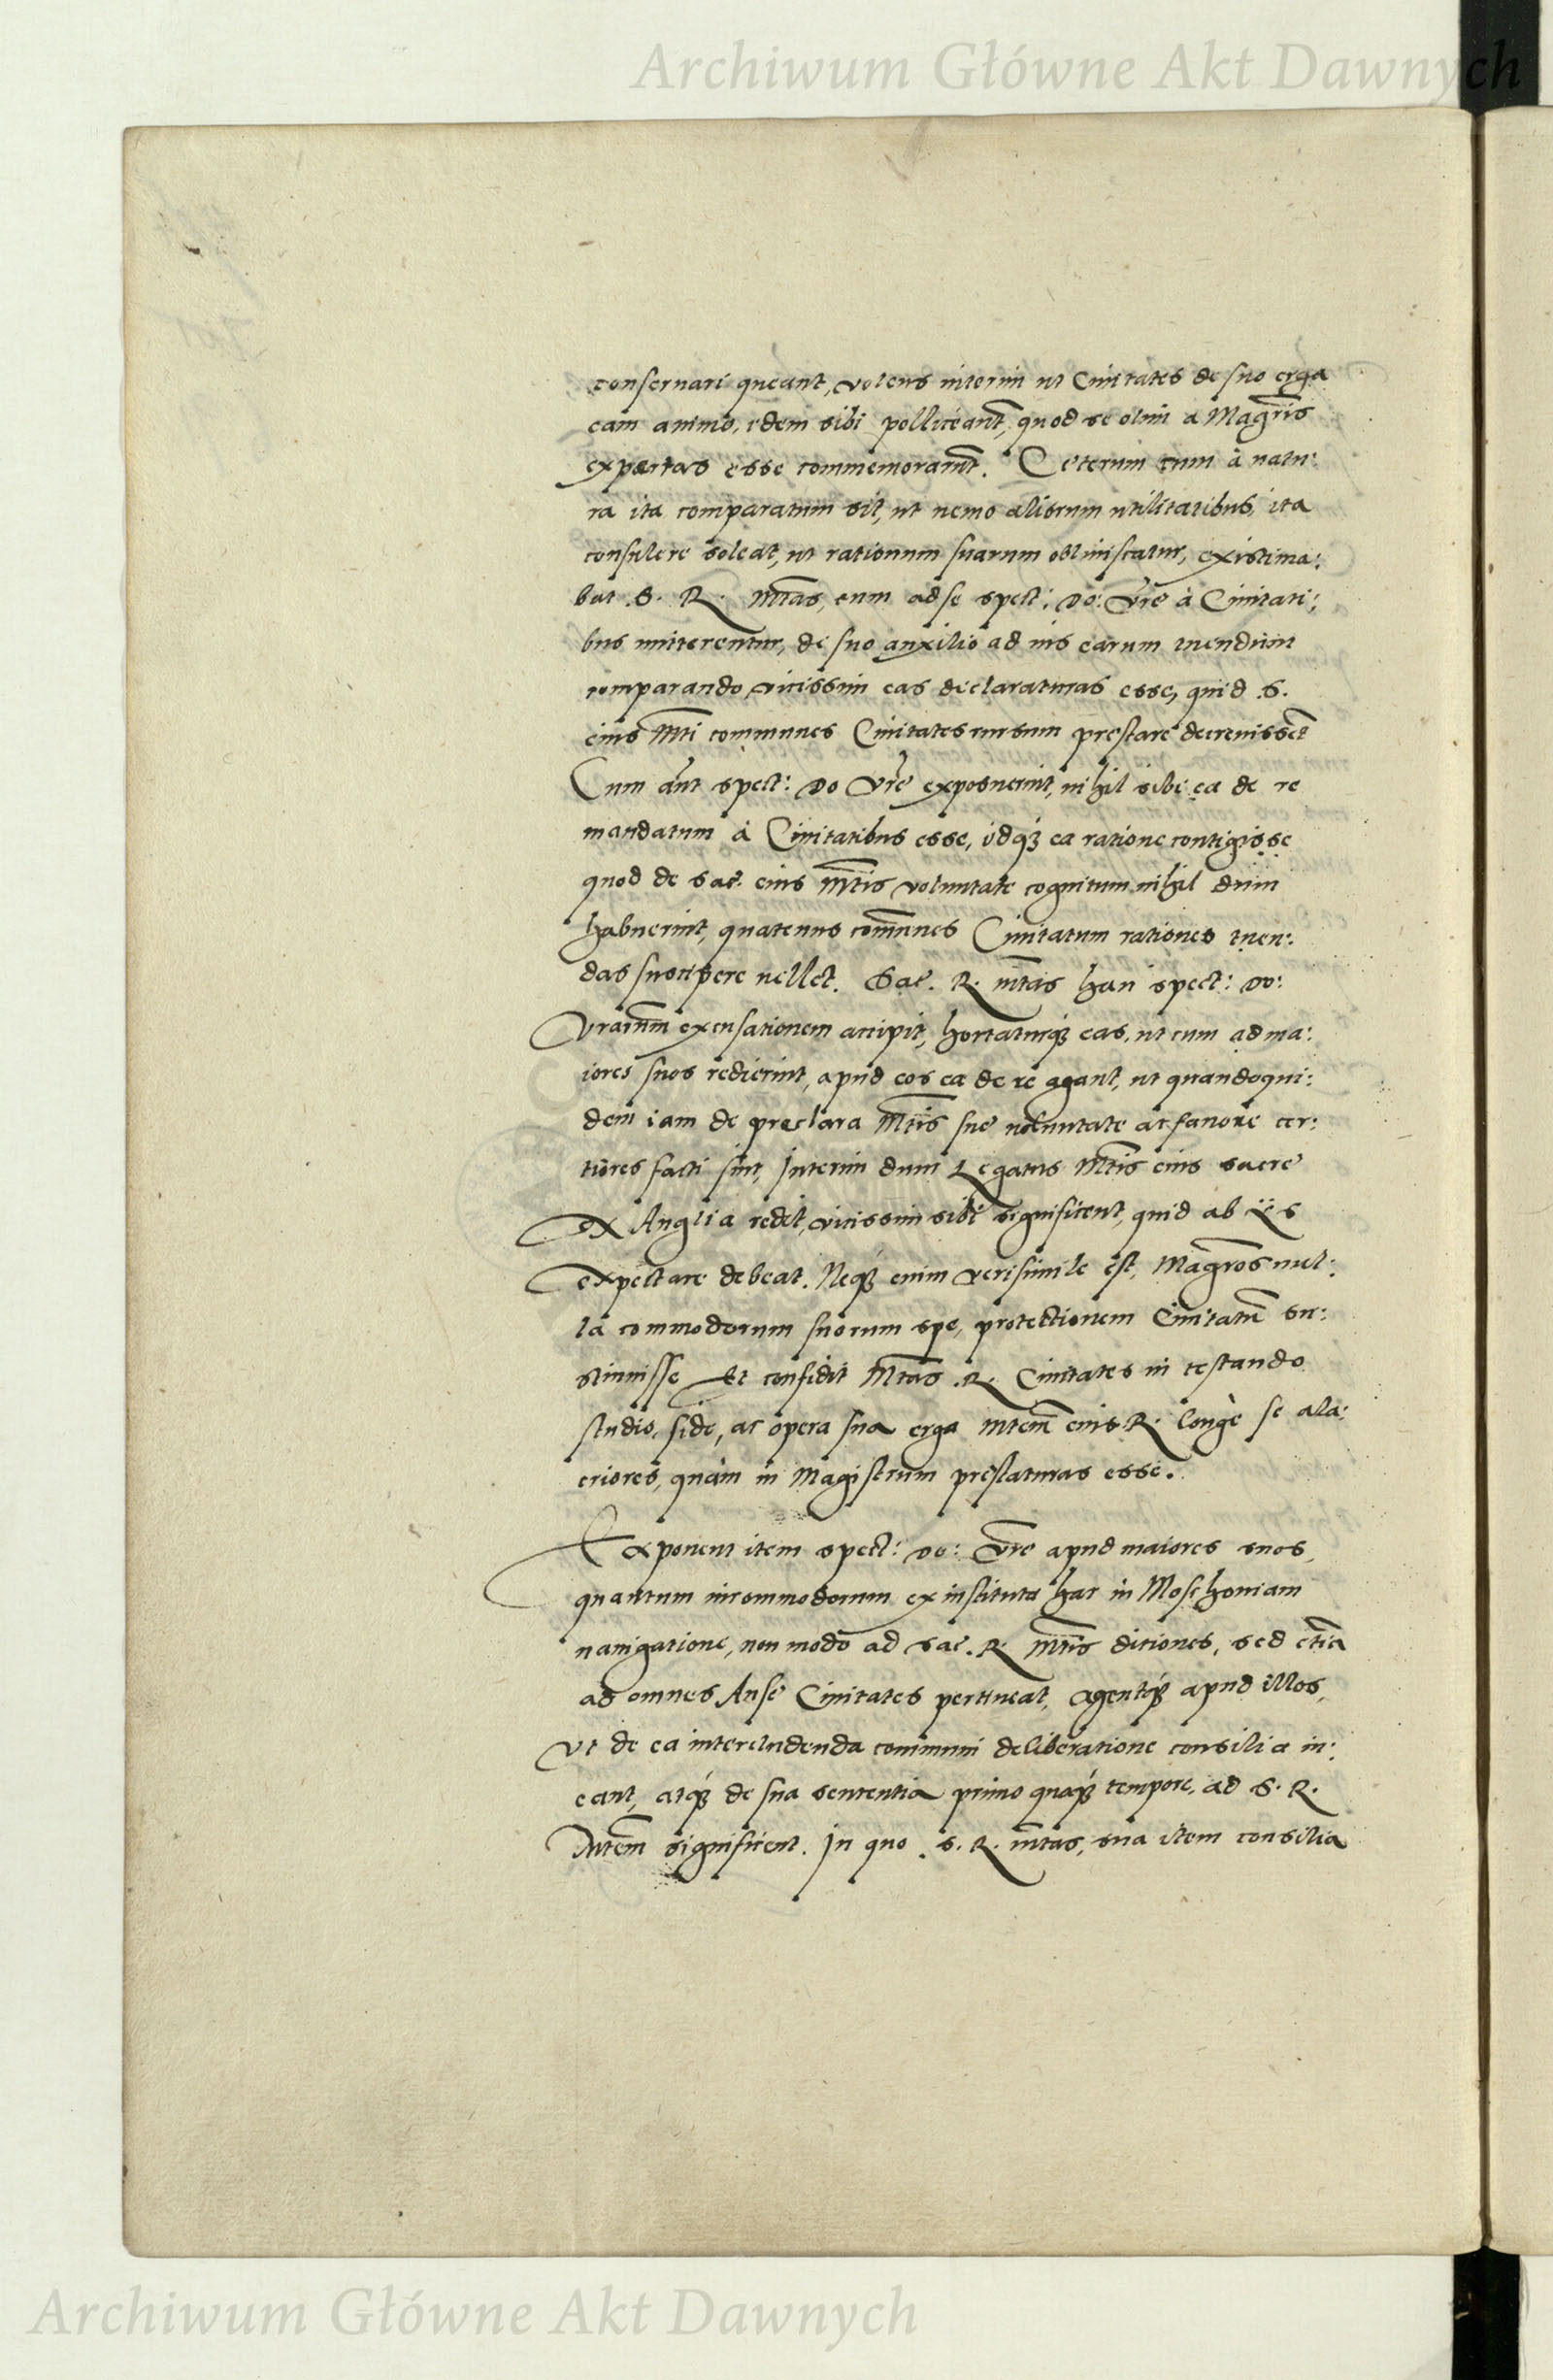 Archiwum Główne Akt Dawnych
conseruari queant, volens interim ut Ciuitates de suo erga
eam animo, idem sibi polliceant̃, quod se olim a Magr̃is
expertas esse commemorarũt. Ceterum cum à natu:
ra ita comparatum sit, ut nemo aliorum utilitatibus, ita
consulere soleat, ut rationum suarum obliuiscatur, existima:
bat S. R. Mt̃as, cum ad se spect: Do: Vr̃e à Ciuitati:
bus mitterentur, de suo auxilio ad ius earum tuendum
comparando, vicissim eas declaraturas esse, quid S.
eius Mt̃i communes Ciuitates rursum prestare decreuissẽt
Cum aũt spect: Do Vr̃e exposuerint, nihil sibi ea de re
mandatum à Ciuitatibus esse, idq3 ea ratione contigisse
quod de Sac. eius Mt̃is voluntate cognitum nihil dum
habuerint, quatenus com̃unes Ciuitatum rationes tuen:
das suscipere uellet. Sac. R. Mt̃as hanc spect: Do:
Vrarũm excusationem accipit, hortaturq3 eas, ut cum ad ma:
iores suos redierint, apud eos ea de re agant, ut quandoqui:
dem iam de preclara Mt̃is sue uoluntate ac fauore cer:
tiores facti sint, Interim dum Legatus Mt̃is eius sacre
ex Anglia redit, vicissim sibi significent, quid ab ÿs
expectare debeat. Neq3 enim verisimile est, Magr̃os nul:
la commodorum suorum spe, protectionem Ciuitatũ su:
stinuisse Et confidit Mt̃as R. Ciuitates in testando
studio, fide, ac opera sua erga Mtem̃ eius R. longè se ala:
criores, quàm in Magistrum prestaturas esse.
Exponent item spect: Do: Vr̃e apud maiores suos,
quantum incommodorum ex instituta hac in Moschouiam
nauigatione, non modo ad Sac. R. Mt̃is ditiones, sed etiã
ad omnes Anse Ciuitates pertineat, agentq3 apud illos,
ut de ea intercludenda communi deliberatione consilia in:
eant, atq3 de sua sententia primo quoq3 tempore, ad S. R.
Mtem̃ significent. In quo S. R. Mt̃as, sua item consilia
Archiwum Główne Akt Dawnych